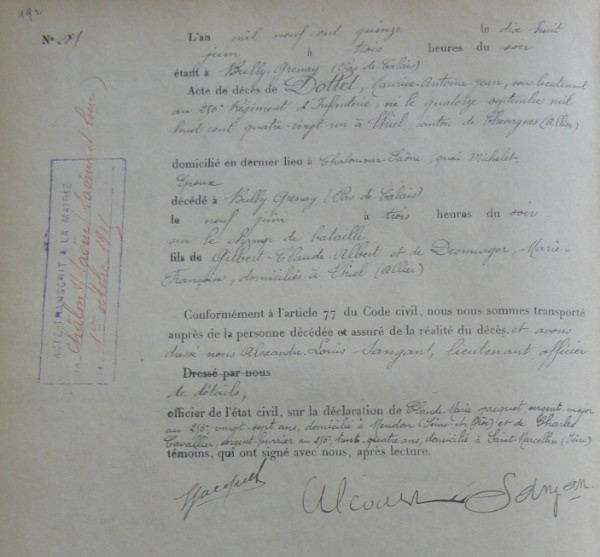 192
L'an mil neuf cent quinze le dix huit
juin à trois heures du soir
étant à Bully-Grenay (Pas de Calais)
Acte de décès de Dottet, Maurice-Antoine-Jean, sous lieutenant
au 256e Régiment d'Infanterie, né le quatorze septembre mil
huit cent quatre-vingt-un à Thiel canton de Chevagnes (Allier)
domicilié en dernier lieu à Chalon-sur-Saône, quai Michelet
Epoux
décédé à Bully-Grenay (Pas de Calais)
le neuf juin à trois heures du soir
sur le champ de bataille
fils de Gilbert-Claude-Albert et de Marie-
Françoise, domiciliés à Thiel (Allier)
Conformément à l'article 77 du Code civil, nous nous sommes transporté
auprès de la personne décédée et assuré de la réalité du décès, et avons
dressé nous Alexandre-Louis Sangant, lieutenant officier
Dressé par nous
de détails,
officier de l'état civil, sur la déclaration de Claude-Marie Jacquet sergent major
au 256e vingt-sept ans, domicilié à et de Charles
Cavallier, sergent-fourrier au 256e trente-quatre ans, domicilié à Saint-Marcellin (Isère)
témoins, qui ont signé avec nous, après lecture.
Jacquet
ACTE TRANSCRIT A LA MAIRIE
Châlon s/ Saône (Saône et Loire)
1er octobre 1915